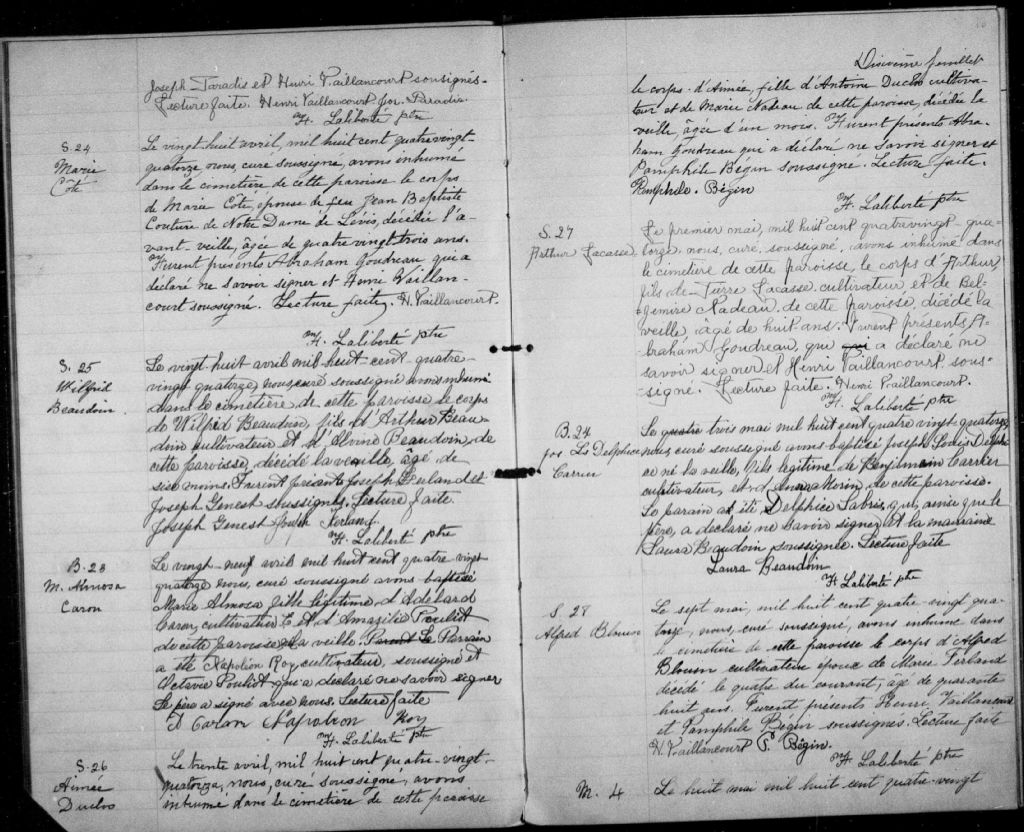 Joseph Paradis et Henri Vaillancourt soussignés.
Lecture faite. Henri Vaillancourt Jos. Paradis
H. Laliberté ptre
S. 24
Marie
Côté
Le vingt-huit avril, mil huit cent quatre vingt-
quatorze, nous, curé soussigné, avons inhumé
dans le cimetière de cette paroisse le corps
de Marie Côté, épouse de feu Jean Baptiste
Couture de Notre Dame de Lévis, décédée l'a-
vant-veille, âgée de quatre vingt trois ans.
Furent présents Abraham Goudreau qui a
déclaré ne savoir signer et Henri Vaillan-
court soussigné. Lecture faite. H. Vaillancourt.
H. Laliberté ptre
S. 25
Wilfrid
Beaudoin
Le vingt-huit avril mil-huit-cent quatre-
vingt quatorze, nous curé soussigné avons inhumé
dans le cimetière de cette paroisse le corps
de Wilfrid Beaudoin, fils d'Arthur Beau-
doin cultivateur et d'Alvine Beaudoin de
cette paroisse, décédé la veille, âgé de
six mois. Furent présents Joseph Ferland et
Joseph Genest soussignés. Lecture faite
Joseph Genest Joseph Ferland
H. Laliberté ptre
B. 23
M. Almosa
Caron
Le vingt-neuf avril mil huit cent quatre vingt
quatorze nous, curé soussigné avons baptisé
Marie Almosa fille légitime d'Adélard
Caron, cultivateur & d'Amazilie Pouliot
de cette paroisse, la veille. Le Parrain
a été Napoléon Roy, cultivateur, soussigné et
Octavie Pouliot qui a déclaré ne savoir signer
Le père a signé avec nous. Lecture faite
A Caron Napoléon Roy
H. Laliberté ptre
S. 26
Aimée
Duclos
Le trente avril, mil huit cent quatre-vingt-
quatorze, nous, curé soussigné, avons
inhumé dans le cimetière de cette paroisse
Dixième feuillet
le corps d'Aimée, fille d'Antoine Duclos cultiva-
teur et de Marie Nadeau de cette paroisse, décédée la
veille, âgée d'un mois. Furent présents Abra-
ham Goudreau qui a déclaré ne savoir signer et
Pamphile Bégin soussigné. Lecture faite.
Pamphile. Bégin
H. Laliberté ptre
S. 27
Arthur Lacasse
Le premier mai, mil huit cent quatrevingt-qua-
torze, nous, curé, soussigné, avons inhumé dans
le cimetière de cette paroisse, le corps d'Arthur,
fils de Pierre Lacasse, cultivateur et de Bel-
zémire Nadeau, de cette paroisse, décédé la
veille, âgé de huit ans. Furent présents A-
braham Goudreau, qui qui a déclaré ne
savoir signer et Henri Vaillancourt, sous-
signé. Lecture faite. Henri Vaillancourt.
H. Laliberté ptre
B. 24
Jos Ls Delphice
Carrier
Le quatre trois mai mil huit cent quatre vingt-quatorze
nous, curé soussigné avons baptisé Joseph Louis Delphice
né la veille, fils légitime de Benjimain Carrier
cultivateur, et d'Anna Morin, de cette paroisse.
Le parain a été, Delphice Labrie, qui, ainsi que le
père, a déclaré ne savoir signer, et la marraine
Laura Beaudoin soussignée. Lecture faite
Laura Beaudoin
H. Laliberté ptre
S. 28
Alfred Blouin
Le sept mai, mil huit cent quatre-vingt qua-
torze, nous, curé soussigné, avons inhumé dans
le cimetière de cette paroisse le corps d'Alfred
Blouin cultivateur époux de Marie Ferland
décédé le quatre du courant, âgé de quarante
huit ans. Furent présents Henri Vaillancourt
et Pamphile Bégin soussignés. Lecture faite
H. Vaillancourt P. Bégin.
H. Laliberté ptre
M. 4
Le huit mai mil huit cent quatre-vingt